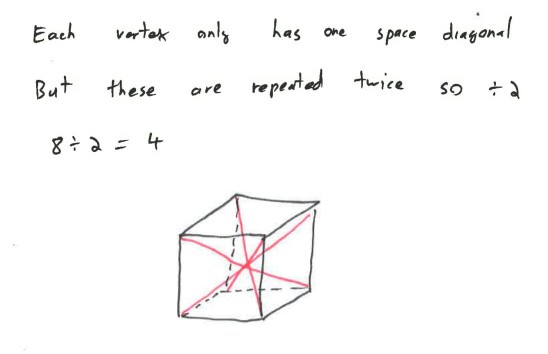 Each vertex only has one space diagonal
But these are repeated twice so ÷2
8÷2 = 4